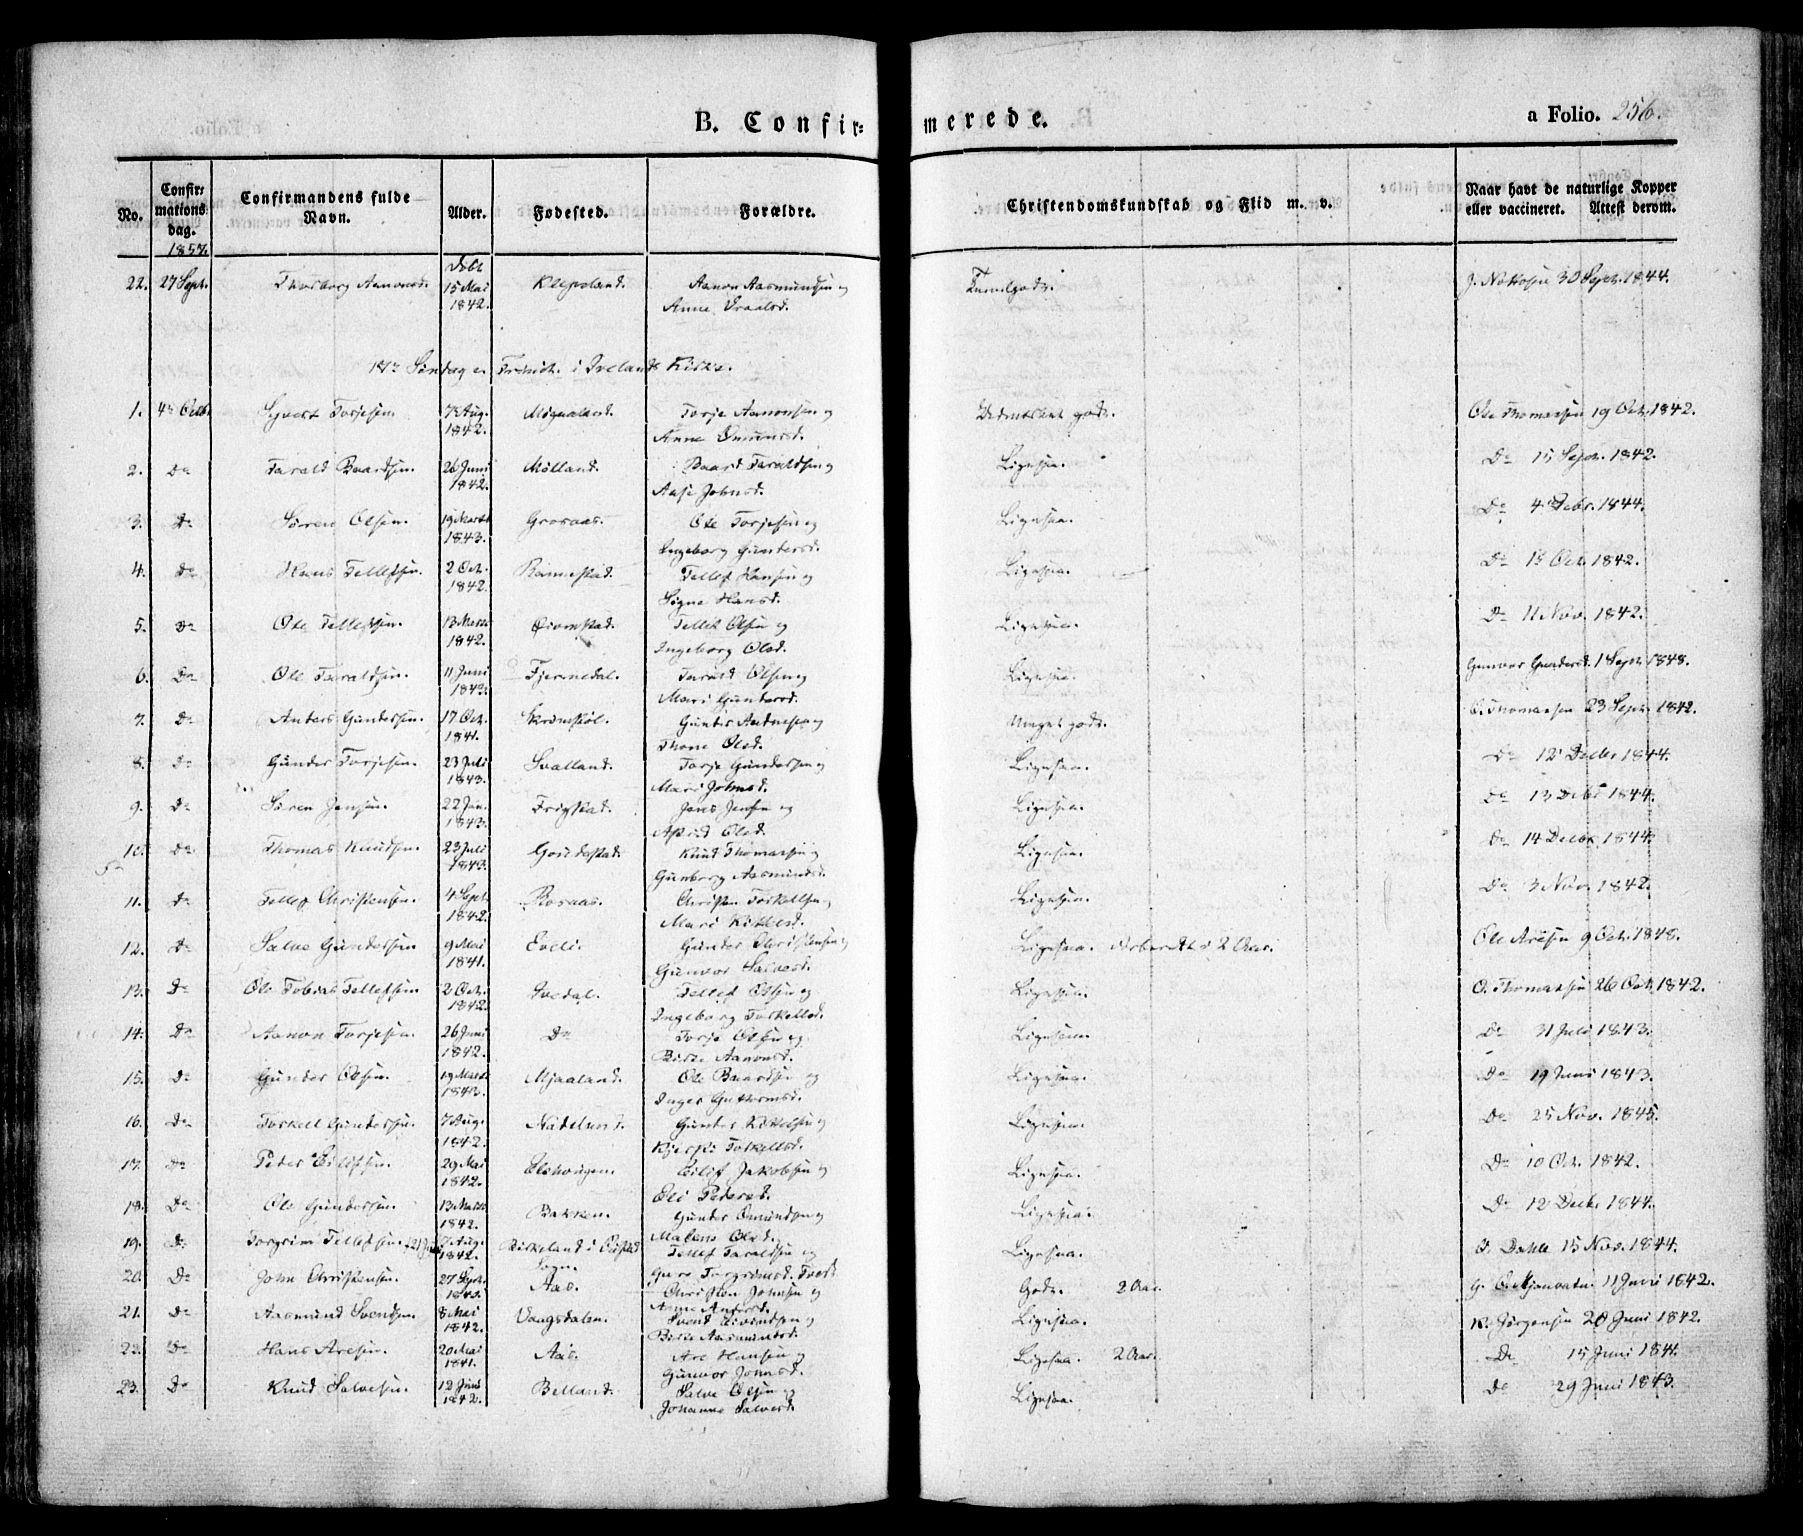 B. Confir= merede.
a Folio. 256.
No. Confir= mations dag. Confirmandens fulde Navn. Alder. Fødested. Forældre. Christendomskundskab og Flid m. v. Naar havt de naturlige Kopper eller vaccineret. Attest derom.
1857.
22. 27 Sept. Thorborg Aanonsd. 15 Mai Klepsland. Aanon Aasmundsen og J. 30 Sept. 1844.
1842. Anne
Søndag e. Trinit. i Ivelands Kirke.
1. 4de Octb. Syvert Torjesen 7 Aug. Terje Aanonsen og godt. Ole Thomassen 19 Oct. 1842.
1842. Anne
2. Do Tarald Baardsen 26 Juni Mølland. Baard Taraldsen og Ligesaa. Do 15 Sept. 1842.
1842. Aase Johnsd.
3. Do Søren Olsen. 19 Marts Grosaas. Ole Torjesen og Ligesaa. Do 4 Debr. 1844.
1843. Ingeborg Gundersd.
4. Do Hans Tellefsen. 2 Oct. Ramnestad. Tellef Hansen og Ligesaa. Do 18 Oct. 1842.
1842. Signe Hansd.
5. Do Ole Tellefsen. 13 Marts Tellef Olsen og Ligesaa. Do 11 Nov. 1842.
1842. Ingeborg Olsd.
6. Do Ole Taraldsen. 11 Juni Fjermedal. Tarald Olsen og Ligesaa. Gunvor Gundersd. 1 Sept. 1848.
1843. Mari Gundersd.
7. Do Anders Gundersen. 17 Oct. Gunder Andersen og Meget godt. O. Thomassen 23 Sept. 1842.
1841. Thone Olsd.
8. Do Gunder Torjesen. 23 Juli Torje Gundersen og Ligesaa. Do 12 Decbr 1844.
1843. Mari Johnsd.
9. Do Søren Jensen. 22 Jan. Frigstad. Jens Jensen og Ligesaa. Do 13 Debr 1844.
1843. Astrid Olsd.
10. Do Thomas Knudsen. 23 Juli Knud Thomassen og Ligesaa. Do 14 Decbr 1844.
1843. Gunborg Aasmundsd.
11. Do Tellef Christensen. 4 Sept. Rosaas. Christen Torkelsen og Ligesaa. Do 3 Nov. 1842.
1842. Mari Kittelsd.
12. Do Salve Gundersen 9 Mai Gunder Christensen og Ligesaa. 2 Aar. Ole Aresen 9 Oct. 1848.
1841. Gunvor Salvesd.
13. Do Ole Tobias Tellefsen 2 Oct. Ivedal. Tellef Olsen og Ligesaa. O. Thomassen 26 Oct. 1842.
1842. Ingeborg Torkelsd.
14. Do Aanon Torjesen. 26 Juni Do Torje Olsen og Ligesaa. Do 31 Juli 1843.
1842. Birte Aanonsd.
15. Do Gunder Olsen. 19 Marts Mjaaland. Ole Baardsen og Ligesaa. Do 19 Juni 1843.
1843. Inger Guttormsd.
16. Do Torkell Gundersen. 7 Aug. Gunder Kittelsen og Ligesaa. Do 25 Nov. 1845.
1842. Torkellsd.
17. Do Peder Eilifsen. 29 Mai Eilif Jakobsen og Ligesaa. Do 10 Oct. 1842.
1842. Pedersd.
18. Do Ole Gundersen. 13 Marts Bakken. Gunder Omundsen og Ligesaa. Do 12 Decbr 1844.
1842. Olsd.
19. Do Torgrim Tellefsen. 7 Aug. Birkeland i Tellef Taraldsen og Ligesaa. O. Dahle 15 Nov. 1844.
1842. Sogn. Torgrimsd.
20. Do John Christensen. 27 Sept. Aas. Christen Johnsen og Godt. 2 Aar. 11 Juni 1842.
Anne
21. Do Aasmund Svendsen. 8 Mai Vaagsdalen. Svend Eivindsen og Ligesaa. Jørgensen 28 Juni 1842.
1842. Birte Aasmundsd.
22. Do Hans Aresen. 20 Mai Aas. Are Hansen og Ligesaa. 2 Aar. Do 15 Juni 1841.
1841. Gunvor Johnsd.
23. Do Knud Salvesen. 12 Juni Belland. Salve Olsen og Ligesaa. Do 29 Juni 1843.
1842. Johanne Salvesd.